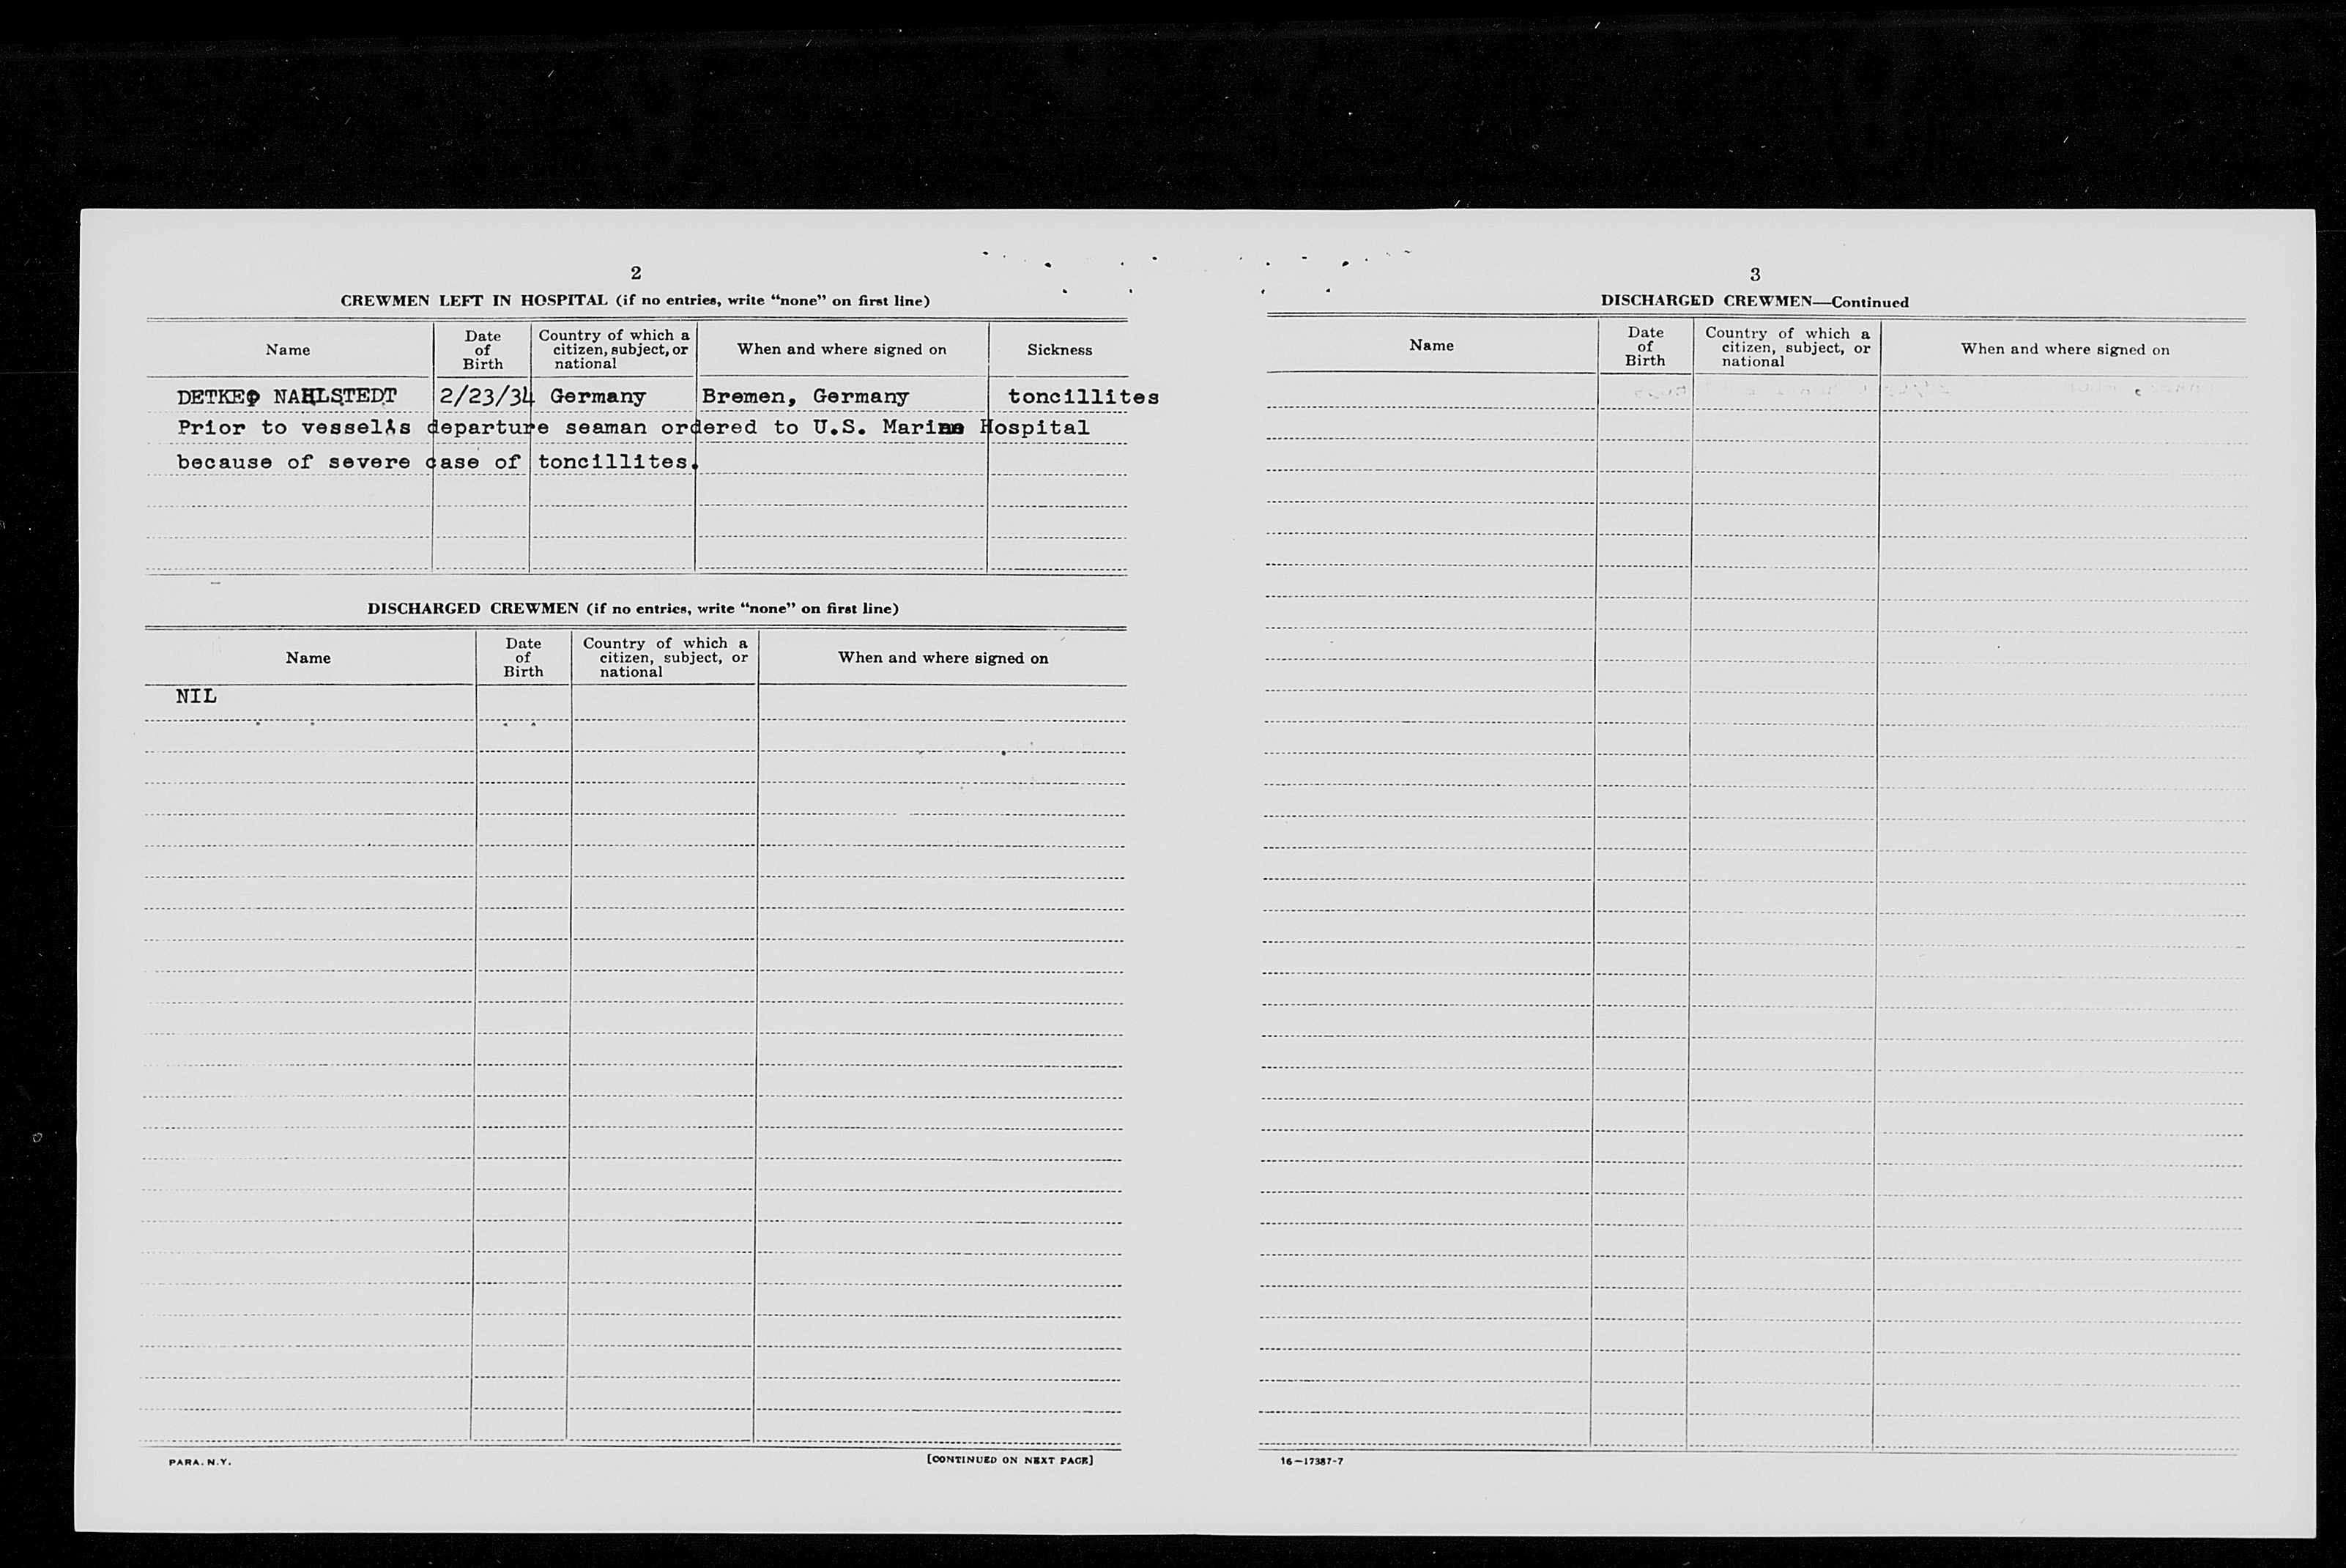 2
CREWMEN LEFT IN HOSPITAL (if no entries, write “none” on first line)
Name Date of Birth Country of which a citizen, subject, or national When and where signed on Sickness
NAHLSTEDT 2/23/34 Germany Bremen, Germany toncillites
Prior to vessel's departure seaman ordered to U.S. Marine Hospital
because of severe case of toncillites.
DISCHARGED CREWMEN (if no entries, write “none” on first line)
Name Date of Birth Country of which a citizen, subject, or national When and where signed on
NIL
PARA. N.Y. [CONTINUED ON NEXT PAGE]
3
DISCHARGED CREWMEN—Continued
Name Date of Birth Country of which a citizen, subject, or national When and where signed on
16—17387-7